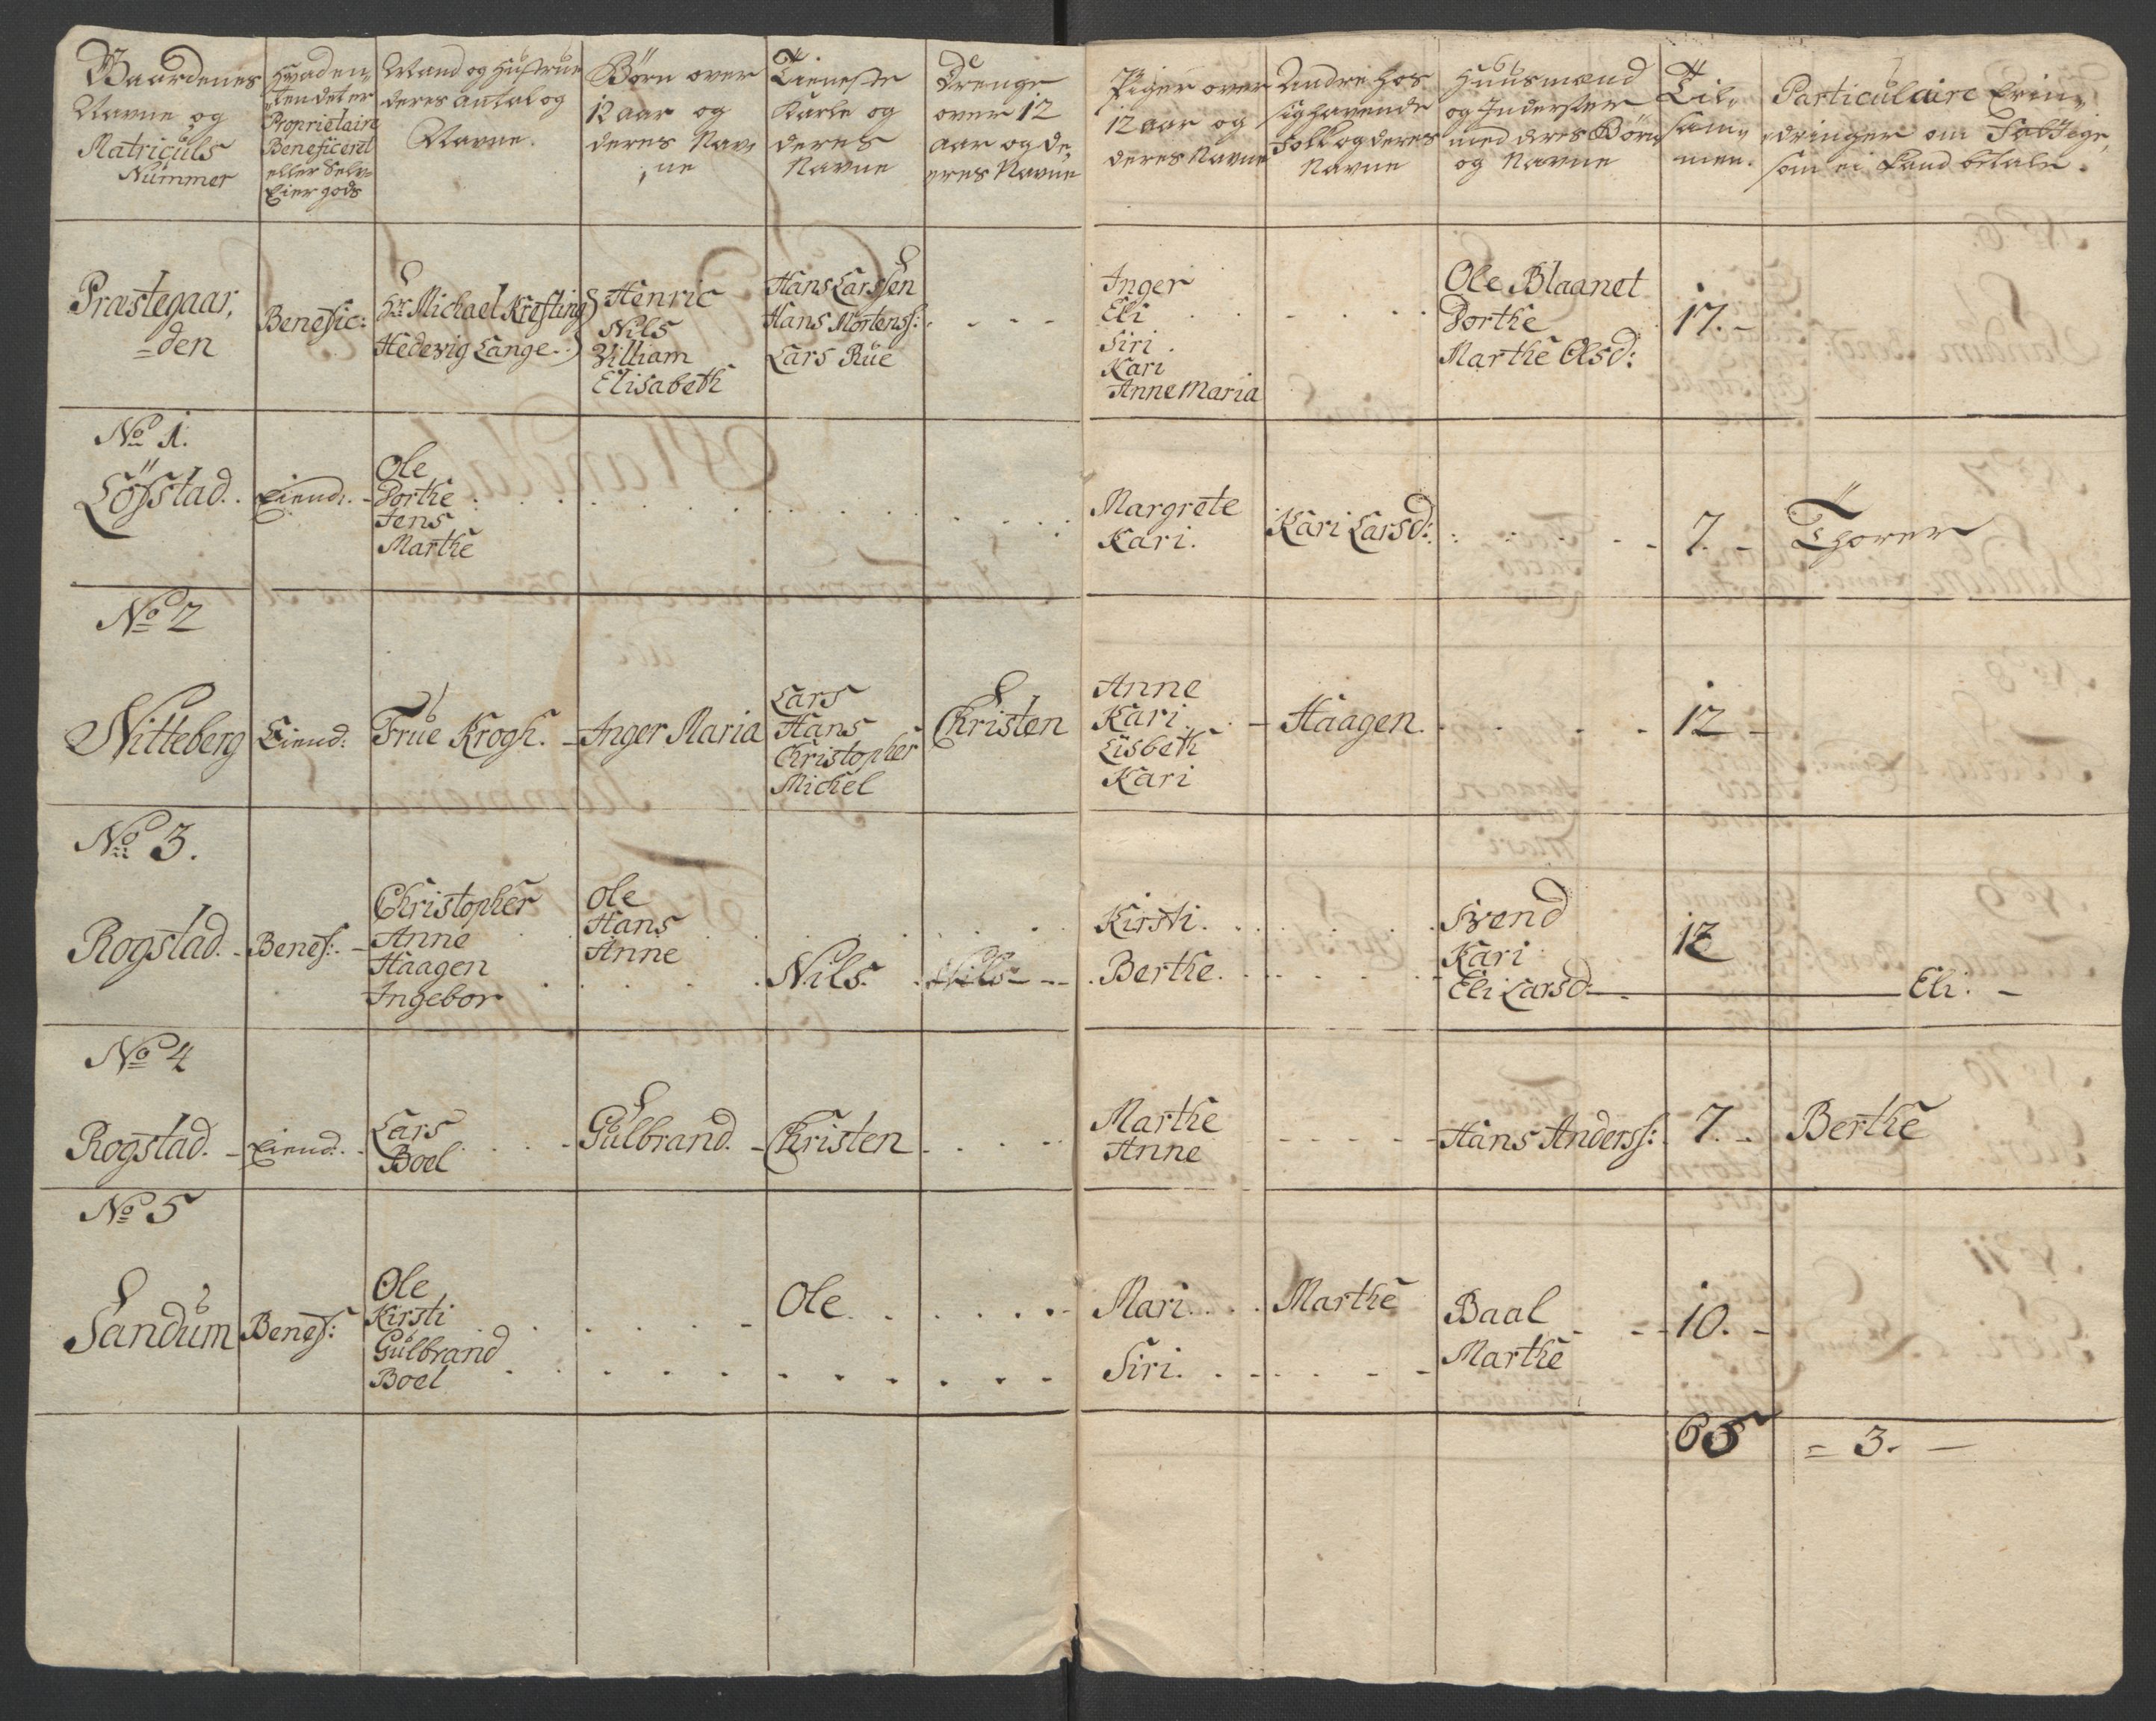 Gaardenes
Navne og
Matriculs
Nummer
Hvaden,,
ten det er
Proprietaire
Beneficeret
eller Selv
Eier gods
Mand og Hustrue
deres antal og
Navne.
Börn over
12 aar og
deres Nav,
,ne
Tieneste
Karle og
deres
Navne
Drenge
over 12
aar og de,
eres Navne
Piger over
12 aar og
deres Navne
Andre hos
sig havende
Folk og deres
Navne
Huusmænd
og Inderster
med deres Börn
og Navne
Til,
sam,,
men.
Particulaire Erin,
dringer om
som ei kand betale.
Præstegaar,
=den
Benefic:
Hr Michael Krefting
Hedevig Lange..
Henric
Nils
William
Elisabeth
Hans Larssen
Hans Mortenss:
Lars Rüe
Inger
Eli
Siri
Kari
Anne Maria
Ole Blaanet
Dorthe
Marthe Olsd:
17.-
No 1.
Löfstad.
Eiend:
Ole
Dorthe
Jens
Marthe
Margrete
Kari.
Kari Larsd:
7.-
Thorer
No 2
Nitteberg
Eiend:
Frue Krogh.
Inger Maria
Lars
Hans
Christopher
Michel
Christen
Anne
Kari
Lisbeth
Kari
Haagen.
12 -
No 3.
Rogstad.
Benef:
Christopher
Anne
Haagen
Ingebor
Ole
Hans
Anne
Nils.
Nils
Kirsti.
Berthe.
Svend
Kari
Eli Larsd:
12
Eli. -
No 4
Rogstad.
Eiend:
Lars
Boel
Gulbrand.
Christen
Marthe
Anne
Hans Anderss:
7.-
Berthe
No 5
Sandüm
Benef:
Ole
Kirsti
Gulbrand
Boel
Ole
Mari
Siri.
Marthe
Baal
Marthe
10.-
65
= 3. -